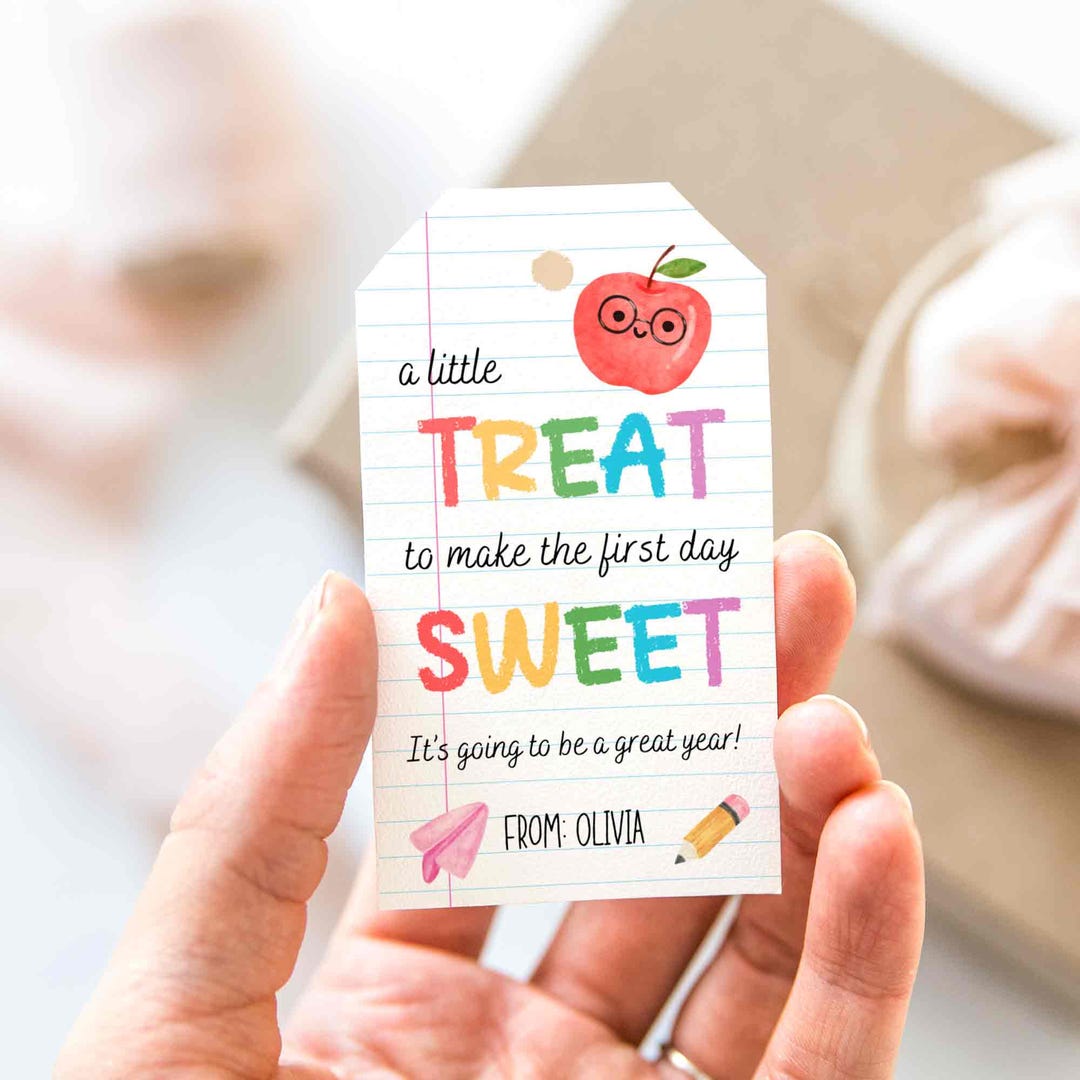 a little
TREAT
to make the first day
SWEET
It's going to be a great year!
FROM: OLIVIA